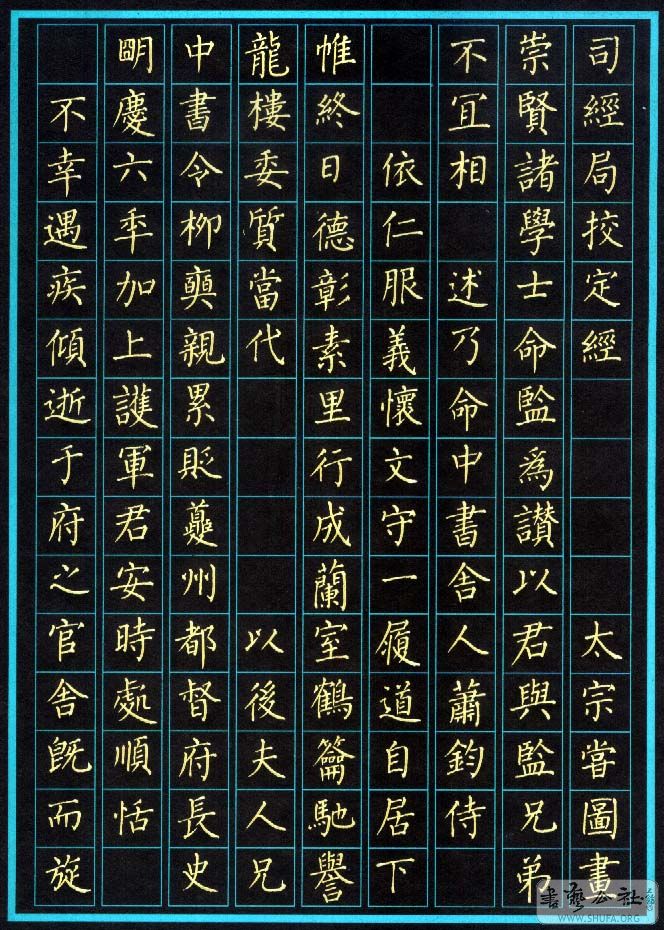 司經局挍定經 太宗甞圖畫
崇賢諸學士命監爲讃以君與監兄弟
不冝相 述乃命中書舎人蕭鈞侍
依仁服義懷文守一履道自居下
帷終日德彰素里行成蘭室鶴籥馳譽
龍樓委質當代 以後夫人兄
中書令柳奭親累貶夔州都督府長史
明慶六年加上護軍君安時處順恬
不幸遇疾傾逝于府之官舎既而旋
書藝公社
WWW.SHUFA.ORG